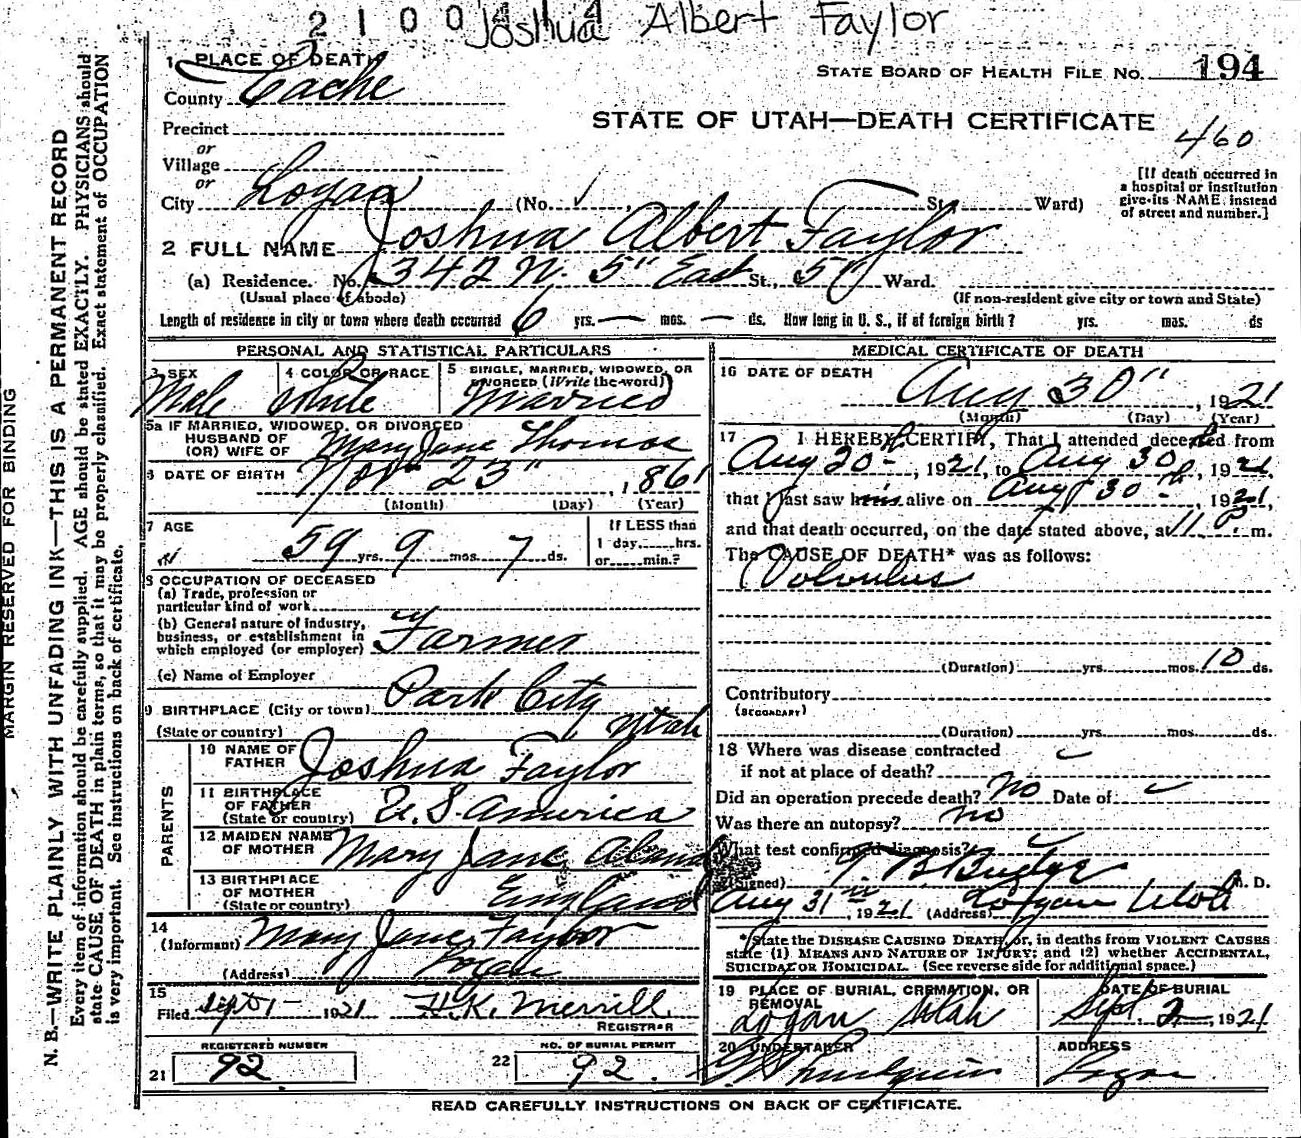 2 1 0 0 4 1 4
Joshua Albert Taylor
1 PLACE OF DEATH
STATE BOARD OF HEALTH FILE NO. 194
County Cache
STATE OF UTAH—DEATH CERTIFICATE
460
Precinct
or
Village
or
City Logan (No. St. Ward)
[If death occurred in
a hospital or institution
give its NAME instead
of street and number.]
2 FULL NAME Joshua Albert Taylor
(a) Residence. No. 342 N. 5" East St., 5" Ward.
(Usual place of abode) (If non-resident give city or town and State)
Length of residence in city or town where death occurred 6 yrs. — mos. — ds. How long in U. S., if of foreign birth? yrs. mos. ds
PERSONAL AND STATISTICAL PARTICULARS
3 SEX Male
4 COLOR OR RACE White
5 SINGLE, MARRIED, WIDOWED, OR
DIVORCED (Write the word)
Married
5a IF MARRIED, WIDOWED, OR DIVORCED
HUSBAND OF
(OR) WIFE OF Mary Jane Thomas
6 DATE OF BIRTH Nov 23", 1861
(Month) (Day) (Year)
7 AGE 59 yrs. 9 mos. 7 ds.
If LESS than
1 day......hrs.
or......min.?
8 OCCUPATION OF DECEASED
(a) Trade, profession or
particular kind of work
(b) General nature of industry,
business, or establishment in
which employed (or employer) Farmer
(c) Name of Employer
9 BIRTHPLACE (City or town) Park City
(State or country) Utah
PARENTS
10 NAME OF
FATHER Joshua Taylor
11 BIRTHPLACE
OF FATHER
(State or country) U. S. America
12 MAIDEN NAME
OF MOTHER Mary Jane
13 BIRTHPLACE
OF MOTHER
(State or country) England
14
(Informant) Mary Jane Taylor
(Address) Logan
15
Filed Sept 1 — 1921 H.K. Merrill
REGISTRAR
REGISTERED NUMBER
21 92
NO. OF BURIAL PERMIT
22 92.
MEDICAL CERTIFICATE OF DEATH
16 DATE OF DEATH
Aug 30", 1921
(Month) (Day) (Year)
17 I HEREBY CERTIFY, That I attended deceased from
Aug 20th, 1921, to Aug 30th, 1921
that I last saw him alive on Aug 30th, 1921,
and that death occurred, on the date stated above, at 11 P. m.
The CAUSE OF DEATH* was as follows:
Volvulus
(Duration) yrs. mos. 10 ds.
Contributory
(SECONDARY)
(Duration) yrs. mos. ds.
18 Where was disease contracted
if not at place of death?
Did an operation precede death? No Date of
Was there an autopsy? No
What test confirmed diagnosis?
(Signed) T B Budge M. D.
Aug 31st, 1921 (Address) Logan Utah
*State the DISEASE CAUSING DEATH, or, in deaths from VIOLENT CAUSES
state (1) MEANS AND NATURE OF INJURY; and (2) whether ACCIDENTAL,
SUICIDAL OR HOMICIDAL. (See reverse side for additional space.)
19 PLACE OF BURIAL, CREMATION, OR
REMOVAL
Logan Utah
DATE OF BURIAL
Sept. 2, 1921
20 UNDERTAKER
ADDRESS
Logan
READ CAREFULLY INSTRUCTIONS ON BACK OF CERTIFICATE.
MARGIN RESERVED FOR BINDING
N. B.—WRITE PLAINLY WITH UNFADING INK—THIS IS A PERMANENT RECORD
Every item of information should be carefully supplied. AGE should be stated EXACTLY. PHYSICIANS should
state CAUSE OF DEATH in plain terms, so that it may be properly classified. Exact statement of OCCUPATION
is very important. See instructions on back of certificate.